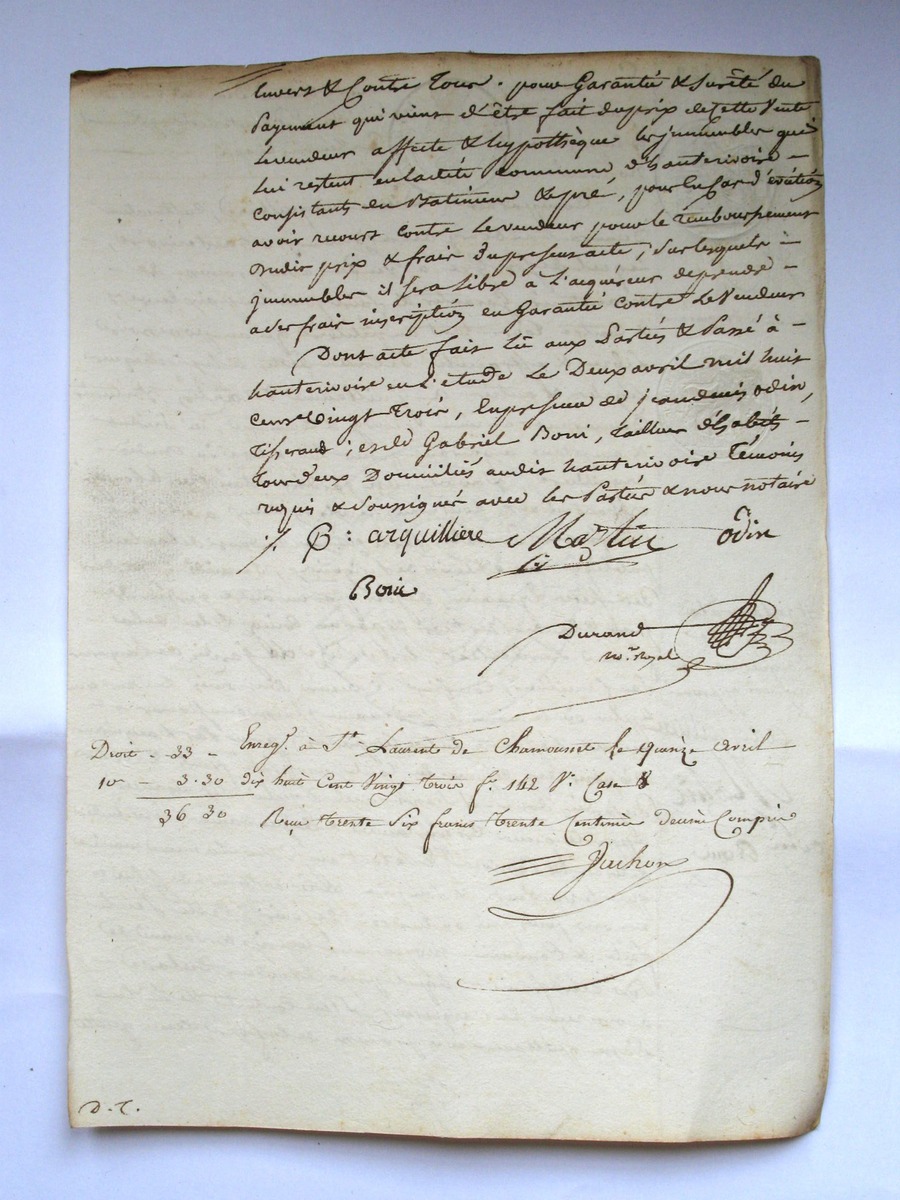 Envers & Contre Tous. pour Garantie & Sureté du
Payement qui vient d'être fait du prix de cette Vente
Le vendeur affecte & hypothèque les jmmeubles qui
Lui restent en ladite Commune d'hauterivoire -
Consistants en Batiment & pré, pour En Cas d'eviction
avoir recours contre Le vendeur pour le remboursement
dudit prix & frais du present acte, Sur lesquels -
jmmeubles il Sera Libre à L'acquéreur de prendre -
a Ses frais inscription en Garantie Contre Le Vendeur
Dont acte fait Lû aux Parties & Passé à -
hauterivoire en L'étude Le Deux avril mil huit
Cent Vingt Trois, En presence de jean denis odin,
Tisserand ; et de Gabriel Boni, Tailleur d'habits -
Tous deux Domiciliés audit hauterivoire Témoins
requis & Soussignés avec les Parties & nous notaire
P : arquilliere Martin odin
Boni
Durand
no.re royal
Droit - 33 - Enreg.t à St Laurent de Chamousset le quinze avril
10e - 3.30 dix huit Cent Vingt trois f.o 142 V.o Case 8
36 30 Reçu trente Six francs trente Centimes decime Compris
Juchon
D. T.